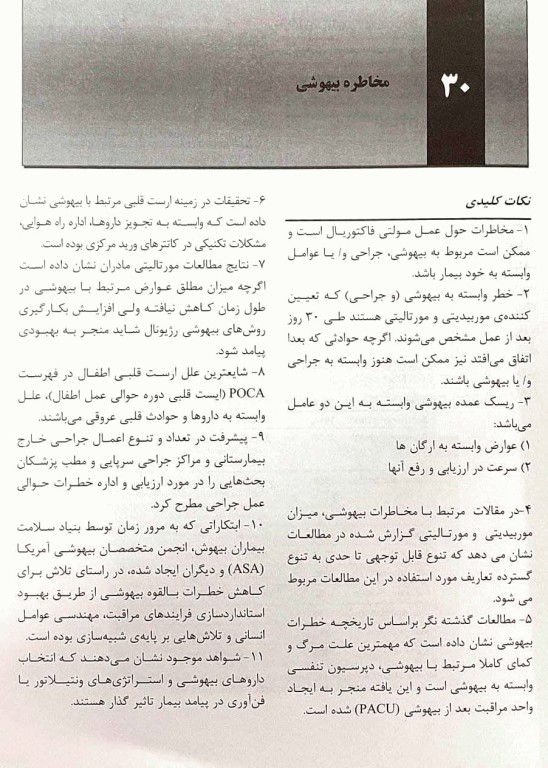 ۳۰
مخاطره بیهوشی
نکات کلیدی
۱- مخاطرات حول عمل مولتی فاکتوریال است و
ممکن است مربوط به بیهوشی، جراحی و/ یا عوامل
وابسته به خود بیمار باشد.
۲- خطر وابسته به بیهوشی (و جراحی) که تعیین
کننده‌ی موربیدیتی و مورتالیتی هستند طی ۳۰ روز
بعد از عمل مشخص می‌شوند. اگرچه حوادثی که بعدا
اتفاق می‌افتد نیز ممکن است هنوز وابسته به جراحی
و/ یا بیهوشی باشند.
۳- ریسک عمده بیهوشی وابسته به این دو عامل
می‌باشد:
۱) عوارض وابسته به ارگان ها
۲) سرعت در ارزیابی و رفع آنها
۴-در مقالات مرتبط با مخاطرات بیهوشی، میزان
موربیدیتی و مورتالیتی گزارش شده در مطالعات
نشان می دهد که تنوع قابل توجهی تا حدی به تنوع
گسترده تعاریف مورد استفاده در این مطالعات مربوط
می شود.
۵- مطالعات گذشته نگر براساس تاریخچه خطرات
بیهوشی نشان داده است که مهمترین علت مرگ و
کمای کاملا مرتبط با بیهوشی، دپرسیون تنفسی
وابسته به بیهوشی است و این یافته منجر به ایجاد
واحد مراقبت بعد از بیهوشی (PACU) شده است.
۶- تحقیقات در زمینه ارست قلبی مرتبط با بیهوشی نشان
داده است که وابسته به تجویز داروها، اداره راه هوایی،
مشکلات تکنیکی در کاتترهای ورید مرکزی بوده است.
۷- نتایج مطالعات مورتالیتی مادران نشان داده است
اگرچه میزان مطلق عوارض مرتبط با بیهوشی در
طول زمان کاهش نیافته ولی افزایش بکارگیری
روش‌های بیهوشی رژیونال شاید منجر به بهبودی
پیامد شود.
۸- شایعترین علل ارست قلبی اطفال در فهرست
POCA (ایست قلبی دوره حوالی عمل اطفال)، علل
وابسته به داروها و حوادث قلبی عروقی می‌باشند.
۹- پیشرفت در تعداد و تنوع اعمال جراحی خارج
بیمارستانی و مراکز جراحی سرپایی و مطب پزشکان
بحث‌هایی را در مورد ارزیابی و اداره خطرات حوالی
عمل جراحی مطرح کرد.
۱۰- ابتکاراتی که به مرور زمان توسط بنیاد سلامت
بیماران بیهوش، انجمن متخصصان بیهوشی آمریکا
(ASA) و دیگران ایجاد شده، در راستای تلاش برای
کاهش خطرات بالقوه بیهوشی از طریق بهبود
استانداردسازی فرایندهای مراقبت، مهندسی عوامل
انسانی و تلاش‌هایی بر پایه‌ی شبیه‌سازی بوده است.
۱۱- شواهد موجود نشان می‌دهند که انتخاب
داروهای بیهوشی و استراتژی‌های ونتیلاتور یا
فن‌آوری در پیامد بیمار تاثیر گذار هستند.